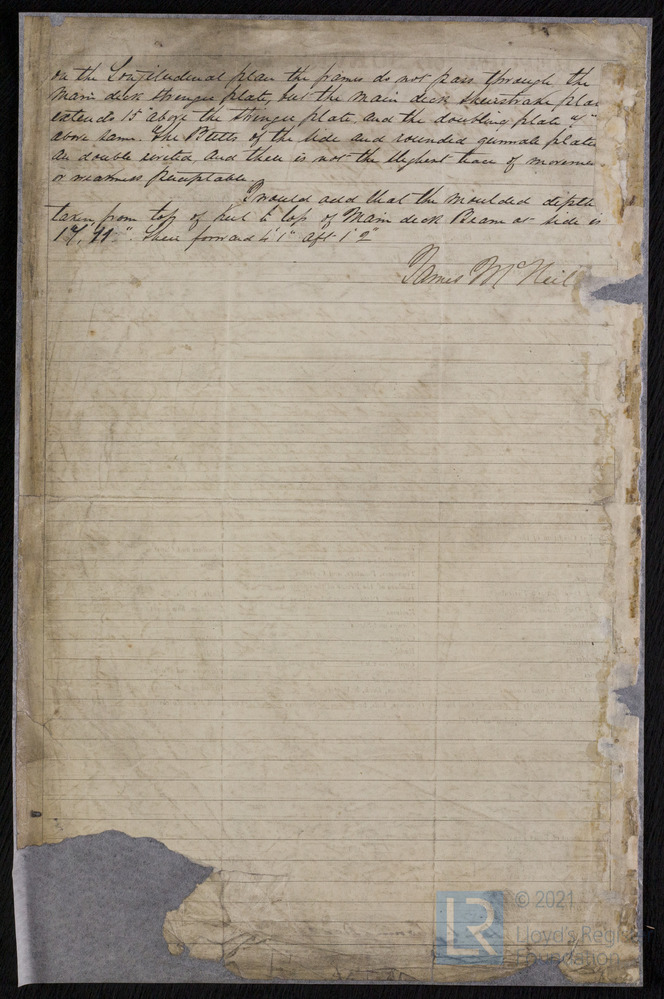 on the Longitudenal plan the frames do not pass through the
Main deck stringer plate, but the Main deck sheerstrake plat
extends 15" above the stringer plate and the doubling plate 4"
above same. The Butts of the side and rounded gunwale plates
are double riveted and there is not the slighest trace of movemen
or weakness preceptable
I would add that the moulded depth
taken from top of keel to top of Main deck Beam at side is
17, 11". Sheer forward 4' 1" aft 1' 2"
James McNeil
LR
© 2021
Lloyd's Regi
Foundation